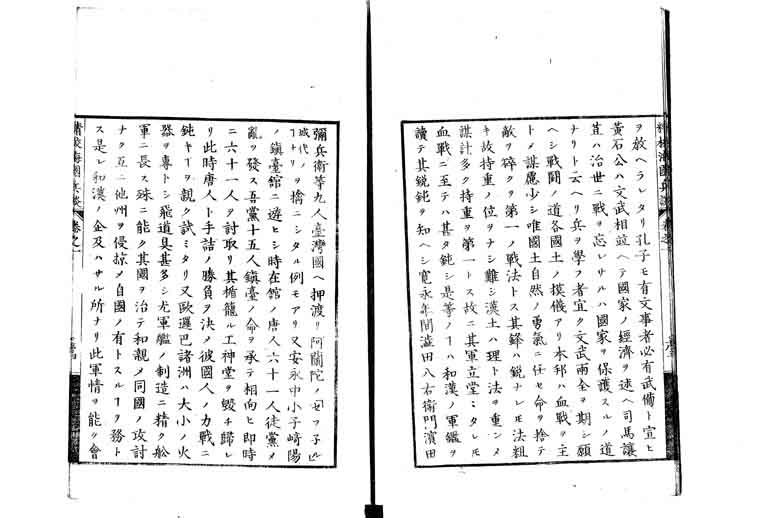 ヲ敎ヘラレタリ孔子モ有文事者必有武備ト宣ヒ
黃石公ハ文武相竝ヘテ國家ノ經濟ヲ述ヘ司馬讓
苴ハ治世ニ戰ヲ忘レサルハ國家ヲ保護スルノ道
ナリト云ヘリ兵ヲ學フ者宜ク文武兩全ヲ期シ願
ヘシ戰鬪ノ道各國土ノ摸儀アリ本邦ハ血戰ヲ主
トメ謀慮少シ唯國土自然ノ勇氣ニ任セ命ヲ捨テ
敵ヲ碎クヲ第一ノ戰法トス其鋒ハ鋭ナレモ法粗
キ故持重ノ位ヲナシ難シ漢土ハ理ト法ヲ重ンメ
謀計多ク持重ヲ第一トス故ニ其軍立堂ミタレモ
血戰ニ至テハ甚タ鈍シ是等ノヿハ和漢ノ軍鑑ヲ
讀テ其鋭鈍ヲ知ヘシ寛永年間濵田八右衛門濱田
精校海國兵談 卷之一
彌兵衛等九人臺灣國ヘ押渡リ阿蘭陀ノ「ゼネラル」
城代ノヿナリヲ擒ニシタル例モアリ又安永中小子﨑陽
ノ鎮臺館ニ遊ヒシ時在館ノ唐人六十一人徒黨メ
亂ヲ發ス吾黨十五人鎮臺ノ命ヲ承テ相向ヒ即時
ニ六十一人ヲ討取リ其楯籠ル工神堂ヲ毀チ歸レ
リ此時唐人ト手詰ノ勝負ヲ決メ彼國人ノ力戰ニ
鈍キヿヲ親ク試ミタリ又歐邏巴諸洲ハ大小ノ火
器ヲ專トシ飛道具甚多シ尤軍艦ノ制造ニ精ク舩
軍ニ長ス殊ニ能ク其國ヲ治テ和親メ同國ノ攻討
ナク互ニ他州ヲ侵掠メ自國ノ有トスルヿヲ務ト
ス是レ和漢ノ企及ハサル所ナリ此軍情ヲ能ク會